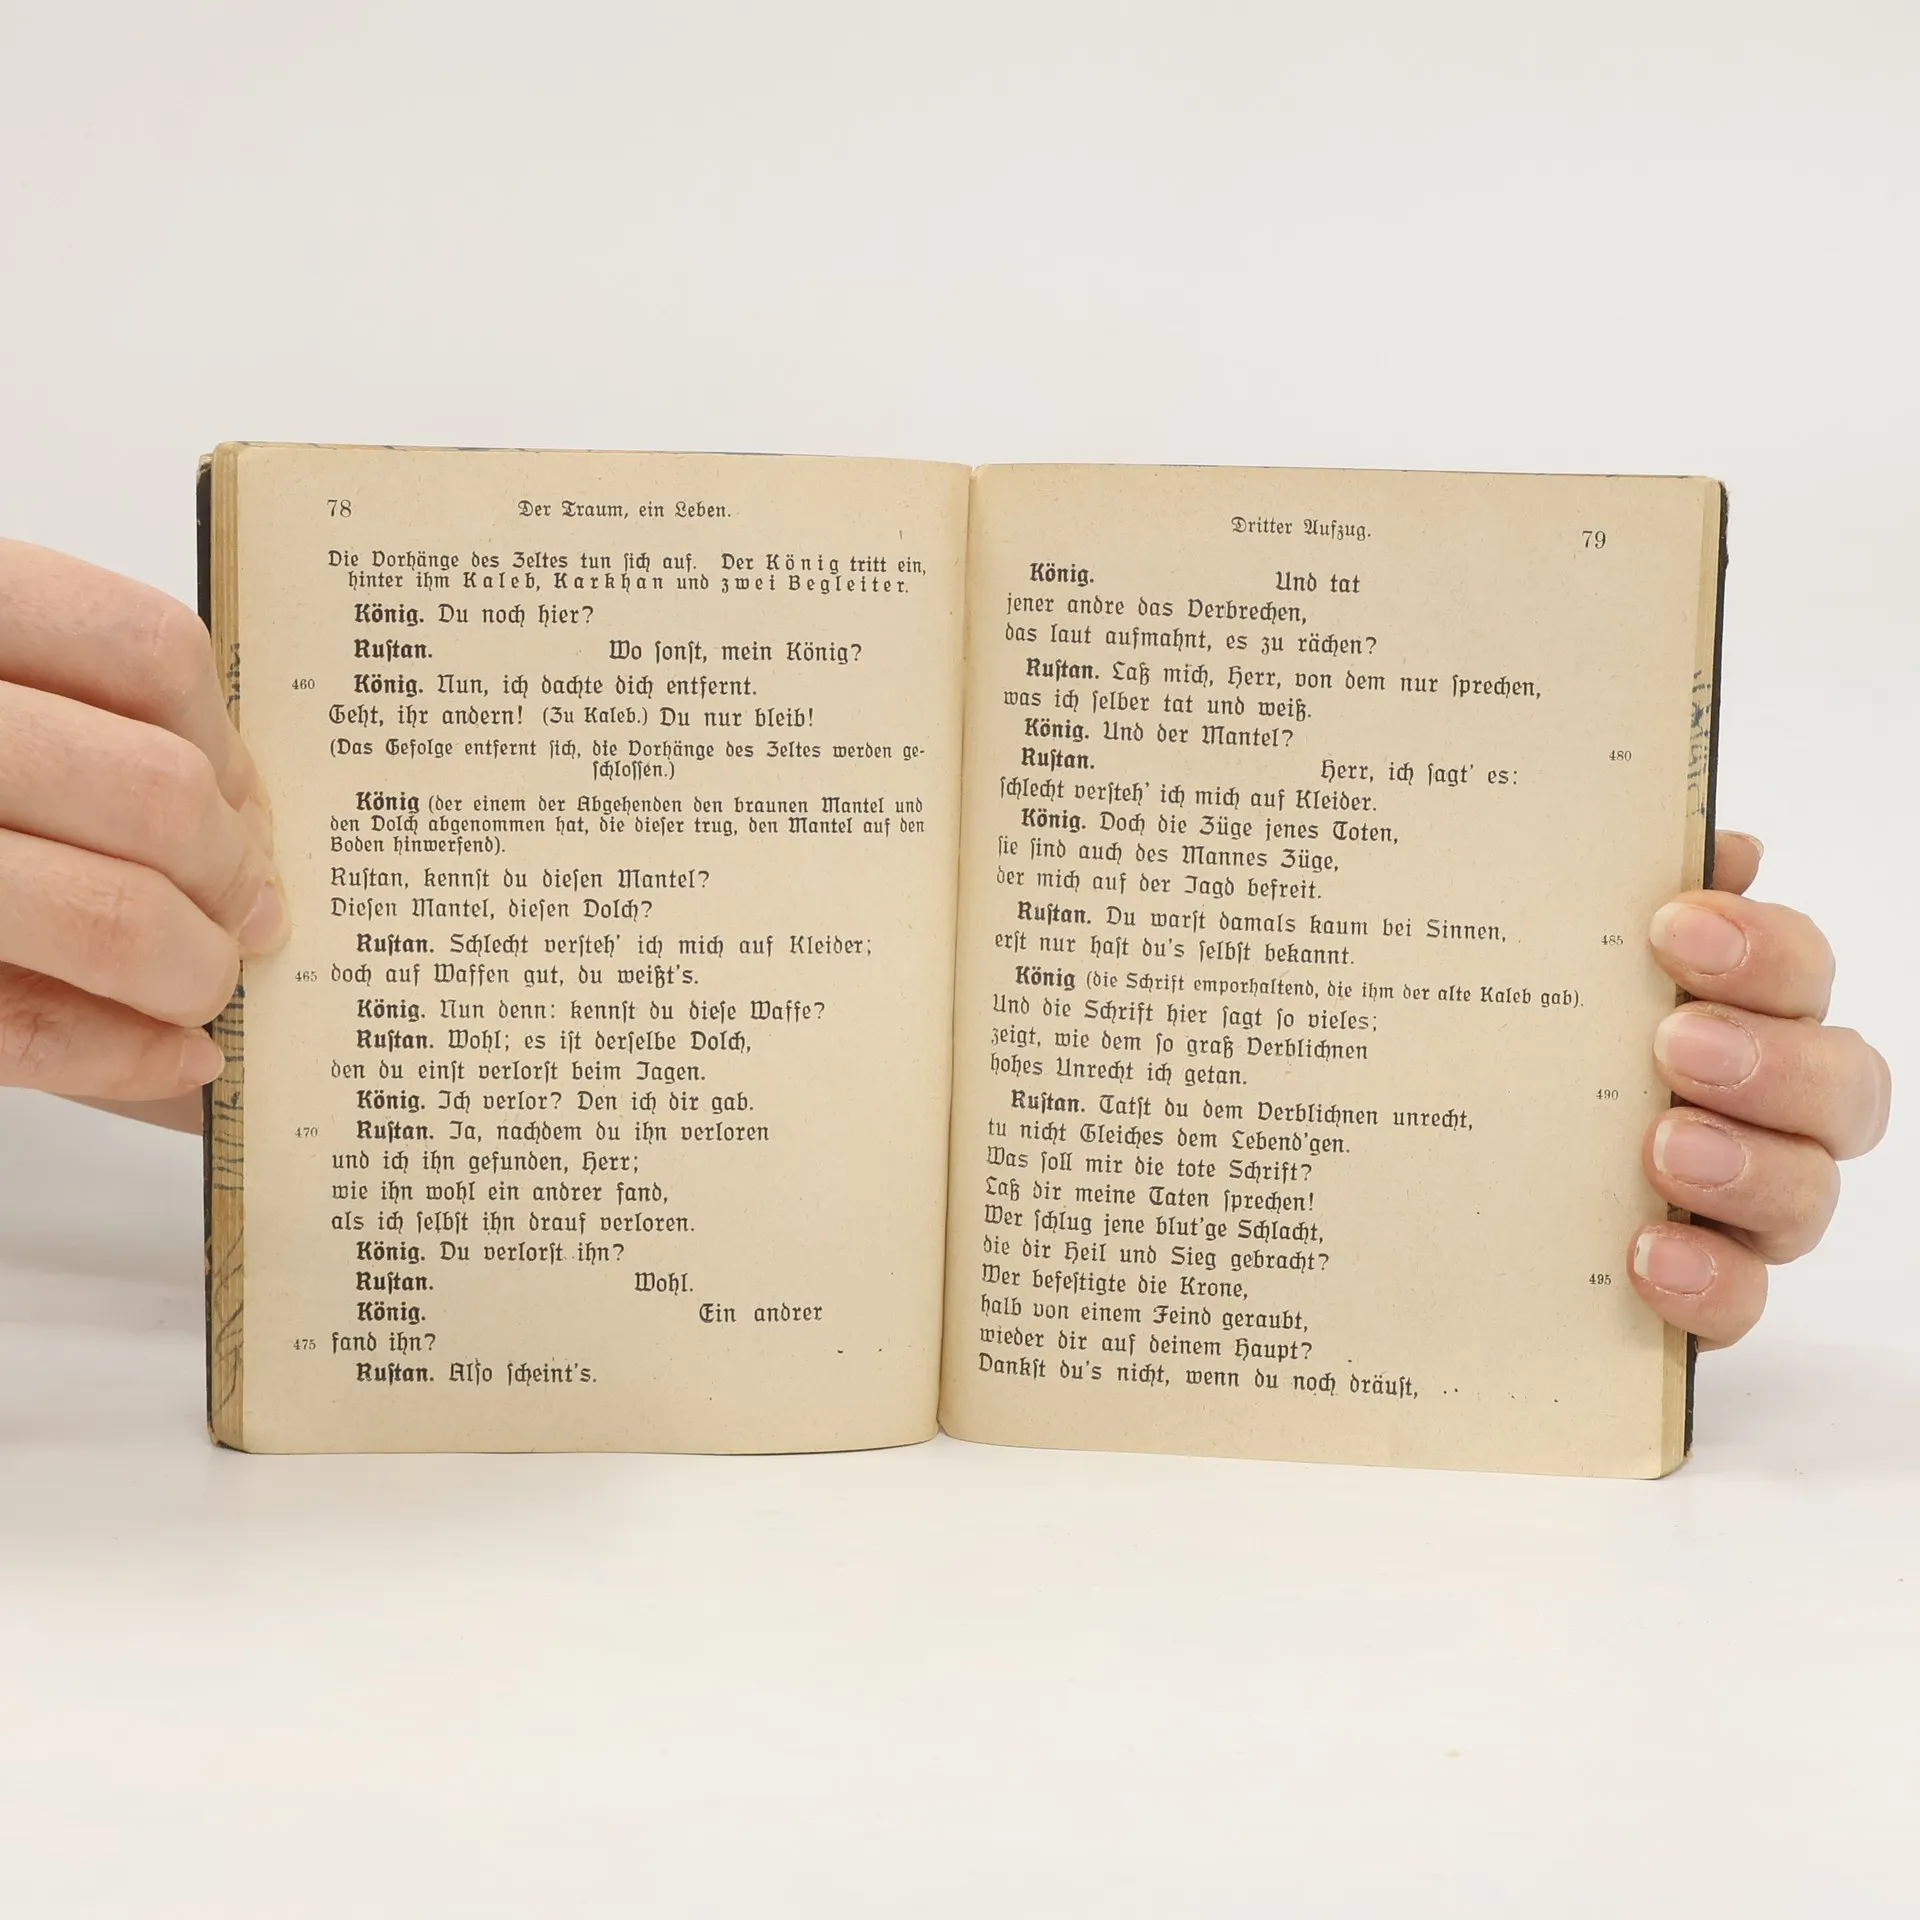 78
Der Traum, ein Leben.
Die Vorhänge des Zeltes tun ſich auf. Der König tritt ein,
hinter ihm Kaleb, Karkhan und zwei Begleiter.
König. Du noch hier?
Ruſtan. Wo ſonſt, mein König?
460 König. Nun, ich dachte dich entfernt.
Geht, ihr andern! (Zu Kaleb.) Du nur bleib!
(Das Gefolge entfernt ſich, die Vorhänge des Zeltes werden ge-
ſchloſſen.)
König (der einem der Abgehenden den braunen Mantel und
den Dolch abgenommen hat, die dieſer trug, den Mantel auf den
Boden hinwerfend).
Ruſtan, kennſt du dieſen Mantel?
Dieſen Mantel, dieſen Dolch?
Ruſtan. Schlecht verſteh' ich mich auf Kleider;
465 doch auf Waffen gut, du weißt's.
König. Nun denn: kennſt du dieſe Waffe?
Ruſtan. Wohl; es iſt derſelbe Dolch,
den du einſt verlorſt beim Jagen.
König. Ich verlor? Den ich dir gab.
470 Ruſtan. Ja, nachdem du ihn verloren
und ich ihn gefunden, Herr;
wie ihn wohl ein andrer fand,
als ich ſelbſt ihn drauf verloren.
König. Du verlorſt ihn?
Ruſtan. Wohl.
König. Ein andrer
475 fand ihn?
Ruſtan. Alſo ſcheint's.
Dritter Aufzug.
79
König. Und tat
jener andre das Verbrechen,
das laut aufmahnt, es zu rächen?
Ruſtan. Laß mich, Herr, von dem nur ſprechen,
was ich ſelber tat und weiß.
König. Und der Mantel? 480
Ruſtan. Herr, ich ſagt' es:
ſchlecht verſteh' ich mich auf Kleider.
König. Doch die Züge jenes Toten,
ſie ſind auch des Mannes Züge,
der mich auf der Jagd befreit.
Ruſtan. Du warſt damals kaum bei Sinnen, 485
erſt nur haſt du's ſelbſt bekannt.
König (die Schrift emporhaltend, die ihm der alte Kaleb gab).
Und die Schrift hier ſagt ſo vieles;
zeigt, wie dem ſo graß Verblichnen
hohes Unrecht ich getan.
Ruſtan. Tatſt du dem Verblichnen unrecht, 490
tu nicht Gleiches dem Lebend'gen.
Was ſoll mir die tote Schrift?
Laß dir meine Taten ſprechen!
Wer ſchlug jene blut'ge Schlacht,
die dir Heil und Sieg gebracht?
Wer befeſtigte die Krone, 495
halb von einem Feind geraubt,
wieder dir auf deinem Haupt?
Dankſt du's nicht, wenn du noch dräuſt,